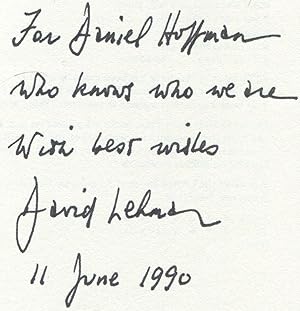 For Daniel Hoffman
who knows who we are
With best wishes
David Lehman
11 June 1990